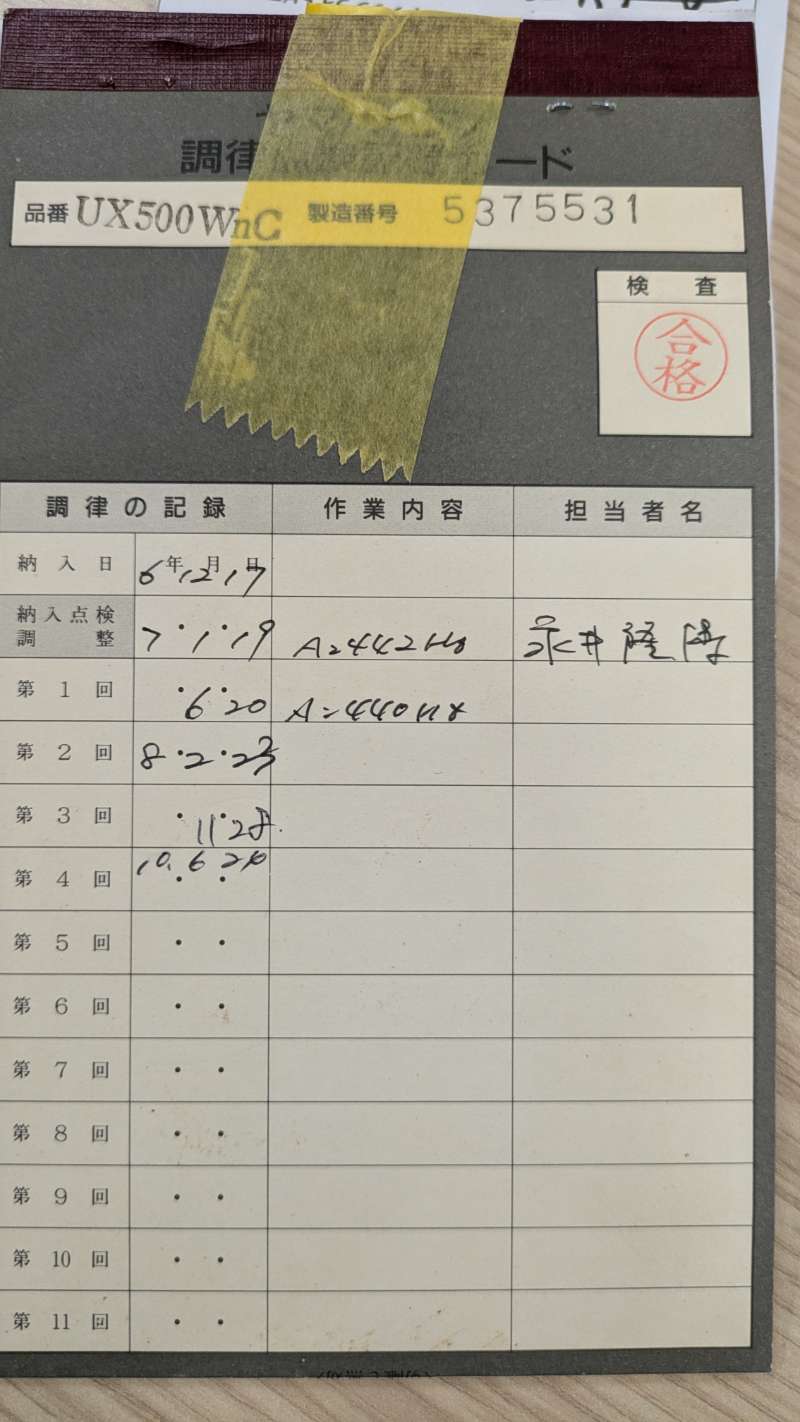 調律 ード
品番 UX500WnC 製造番号 5375531
検査
合格
調律の記録 作業内容 担当者名
納入日 6年12月17日
納入点検調整 7・1・19 A=442Hz 永井隆
第1回 ・6・20 A=440Hz
第2回 8・2・23
第3回 ・11・28
第4回 10.6
第5回 ・・
第6回 ・・
第7回 ・・
第8回 ・・
第9回 ・・
第10回 ・・
第11回 ・・